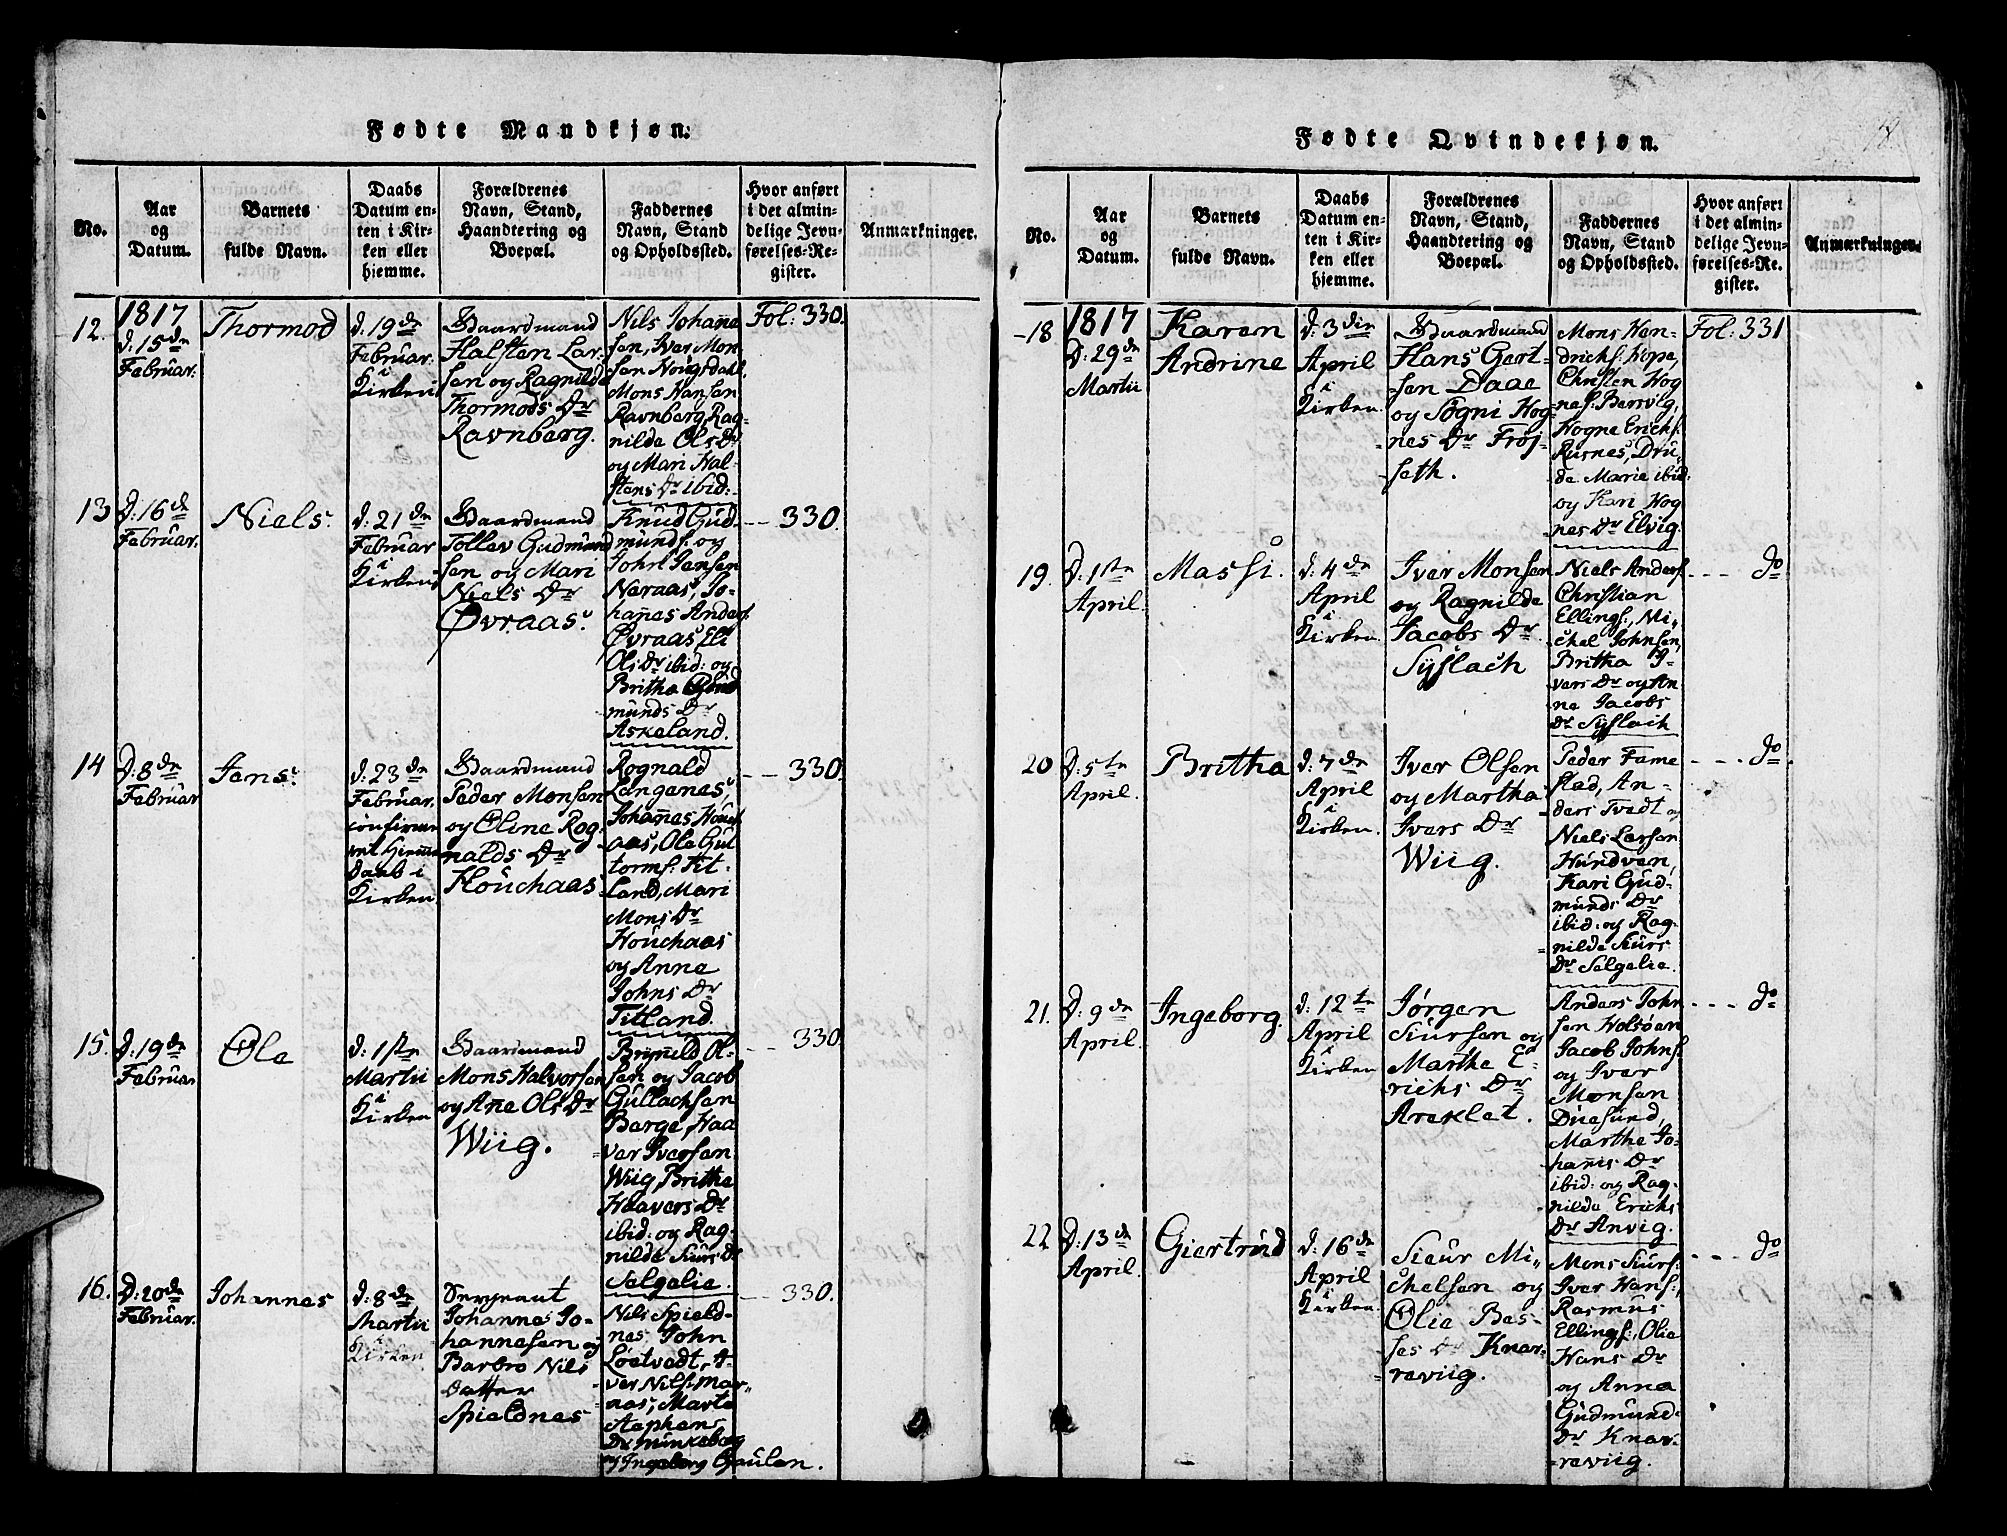 Fødte Mandkjøn.
No.
Aar
og
Datum.
Barnets
fulde Navn.
Daabs
Datum en-
ten i Kir-
ken eller
hjemme.
Forældrenes
Navn, Stand,
Haandtering og
Boepæl.
Faddernes
Navn, Stand
og Opholdssted.
Hvor anført
i det almin-
delige Jevn-
førelses-Re-
gister.
Anmærkninger.
12.
1817
d: 15de
Februar.
Thormod
d: 19de
Februar.
i
Kirken
Gaardmand
Halsten Lar-
sen og Ragnilde
Thormods Dr
Ravnberg.
Nils Johañe
sen, Iver Mon
sen Nougsdahl.
Mons Hansen
Ravnberg, Rag-
nilde Ols Dr
og Mari Hal-
stens Dr ibid:
Fol: 330.
13
D: 16de
Februar.
Niels.
d: 21de
Februar
i
Kirken
Gaardmand
Tollev Gudmund
sen og Mari
Niels Dr
Øvraas.
Knud Gud-
munds: og
John Jansen
Naraas, Jo-
hañes Anders:
Øvraas, Eli
Ols Dr ibid: og
Britha Gud
munds Dr
Askeland.
330.
14
D: 8de
Februar
Jens.
d: 23de
Februar.
confirme
ret Hjemme
Daab i
Kirken
Gaardmand
Peder Monsen
og Oline Rog-
nalds Dr
Houchaas
Rognald
Langenes,
Johañes Houch
aas, Ole Gut
torms: Tit-
land, Mari
Mons Dr
Houchaas
og Anne
Johns Dr
Titland.
330.
15.
D: 19de
Februar
Ole
d: 1ste
Martii
i
Kirken
Gaardmand
Mons Halvorsen
og Añe Ols Dr
Wiig.
Brynild Ol-
sen og Jacob
Gullachsen
Berge, Haa
ver Iversen
Wiig, Britha
Haavers Dr
ibid: og Rag-
nilde Siurs Dr
Selgelie.
330.
16.
D: 20de
Februar.
Johannes
d: 8de
Martii
i
Kirken
Sergeant
Johannes Jo-
hannesen og
Barbro Nils
Datter
Spieldnes
Nils Spield-
nes, John
Loetvedt, I-
ver Nils: Mar-
aas, Marta
Stephens
Dr Munkeberg
og Ingeborg Gaulen.
330.
Fødte Qvindekjøn.
No.
Aar
og
Datum.
Barnets
fulde Navn.
Daabs
Datum en-
ten i Kir-
ken eller
hjemme.
Forældrenes
Navn, Stand,
Haandtering og
Boepæl.
Faddernes
Navn, Stand
og Opholdssted.
Hvor anført
i det almin-
delige Jevn-
førelses-Re-
gister.
Anmærkninger.
18
1817
D: 29de
Martii
Karen
Andrine
d: 3die
April
i
Kirken.
Gaardmand
Hans Gert-
sen Daae
og Sögni Hog-
nes Dr Fröj-
seth.
Mons Hen-
drichs: Hope,
Christen Hog
nes: Berrvig,
Hogne Erichs:
Rusnes, Dru-
de Marie ibid:
og Kari Hog
nes Dr Elvig.
Fol: 331
19.
D: 1ste
April.
Massi.
d: 4de
April
i
Kirken.
Iver Monsen
og Ragnilde
Jacobs Dr
Syslach
Niels Anders:
Christian
Ellings:, Mi-
chel Johnsen,
Britha I-
vers Dr og An
ne Jacobs
Dr Syslach
do
20
D: 5te
April.
Britha
d: 7de
April
i
Kirken.
Iver Olsen
og Martha
Ivers Dr
Wiig.
Peder Fame
stad, An-
ders Tvedt og
Niels Larsen
Hundven,
Kari Gud-
munds Dr
ibid: og Rag-
nilde Siurs
Dr Selgelie.
do
21.
D: 9de
April.
Ingeborg.
d: 12te
April
i
Kirken
Jørgen
Siursen og
Marthe E-
richs Dr
Areklet.
Anders John
sen Holsøen
Jacob Johns:
og Iver
Monsen
Duesund,
Marthe Jo-
hañis Dr
ibid: og Rag-
nilde Erichs
Dr Anvig.
do
22
D: 13de
April.
Giertrud
d: 16de
April
i
Kirken
Sieur Mi-
chelsen og
Olie Bes-
ses Dr Knar-
reviig.
Mons Siurs:
Iver Hans:,
Rasmus
Ellings:, Olie
Hans Dr
og Anna
Gudmund-
Dr Knar-
reviig.
do